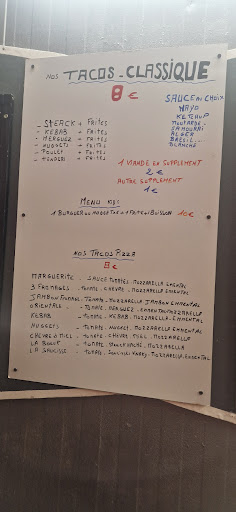 NOS TACOS - CLASSIQUE
8 €
SAUCE AU CHOIX
MAYO
KETCHUP
MOUTARDE
SAMOURAÏ
ALGER
BRESIL
BLANCHE
- STEACK + FRITES
- KEBAB + FRITES
- MERGUEZ + FRITES
- NUGGETS + FRITES
- POULET + FRITES
+ FRITES
1 VIANDE EN SUPPLEMENT
2 €
AUTRE SUPPLEMENT
1 €
MENU KIDS
1 BURGER OU NUGGETS + 1 FRITE + 1 BOISSON 10 €
NOS TACOS PIZZA
8 €
MARGUERITE - SAUCE TOMATES - MOZZARELLA EMENTAL
3 FROMAGES - TOMATE - CHEVRE - MOZZARELLA EMENTAL
JAMBON - TOMATE - MOZZARELLA JAMBON EMMENTAL
ORIENTALE - TOMATE - MERGUEZ - EMMENTAL MOZZARELLA
KEBAB - TOMATE - KEBAB - MOZZARELLA - EMMENTAL
NUGGETS - TOMATE - NUGGET - MOZZARELLA - EMMENTAL
CHEVRE O MIEL - TOMATE - CHEVRE - MIEL - MOZZARELLA
LA - TOMATE - MOZZARELLA
LA - TOMATE - MOZZARELLA - EMMENTAL